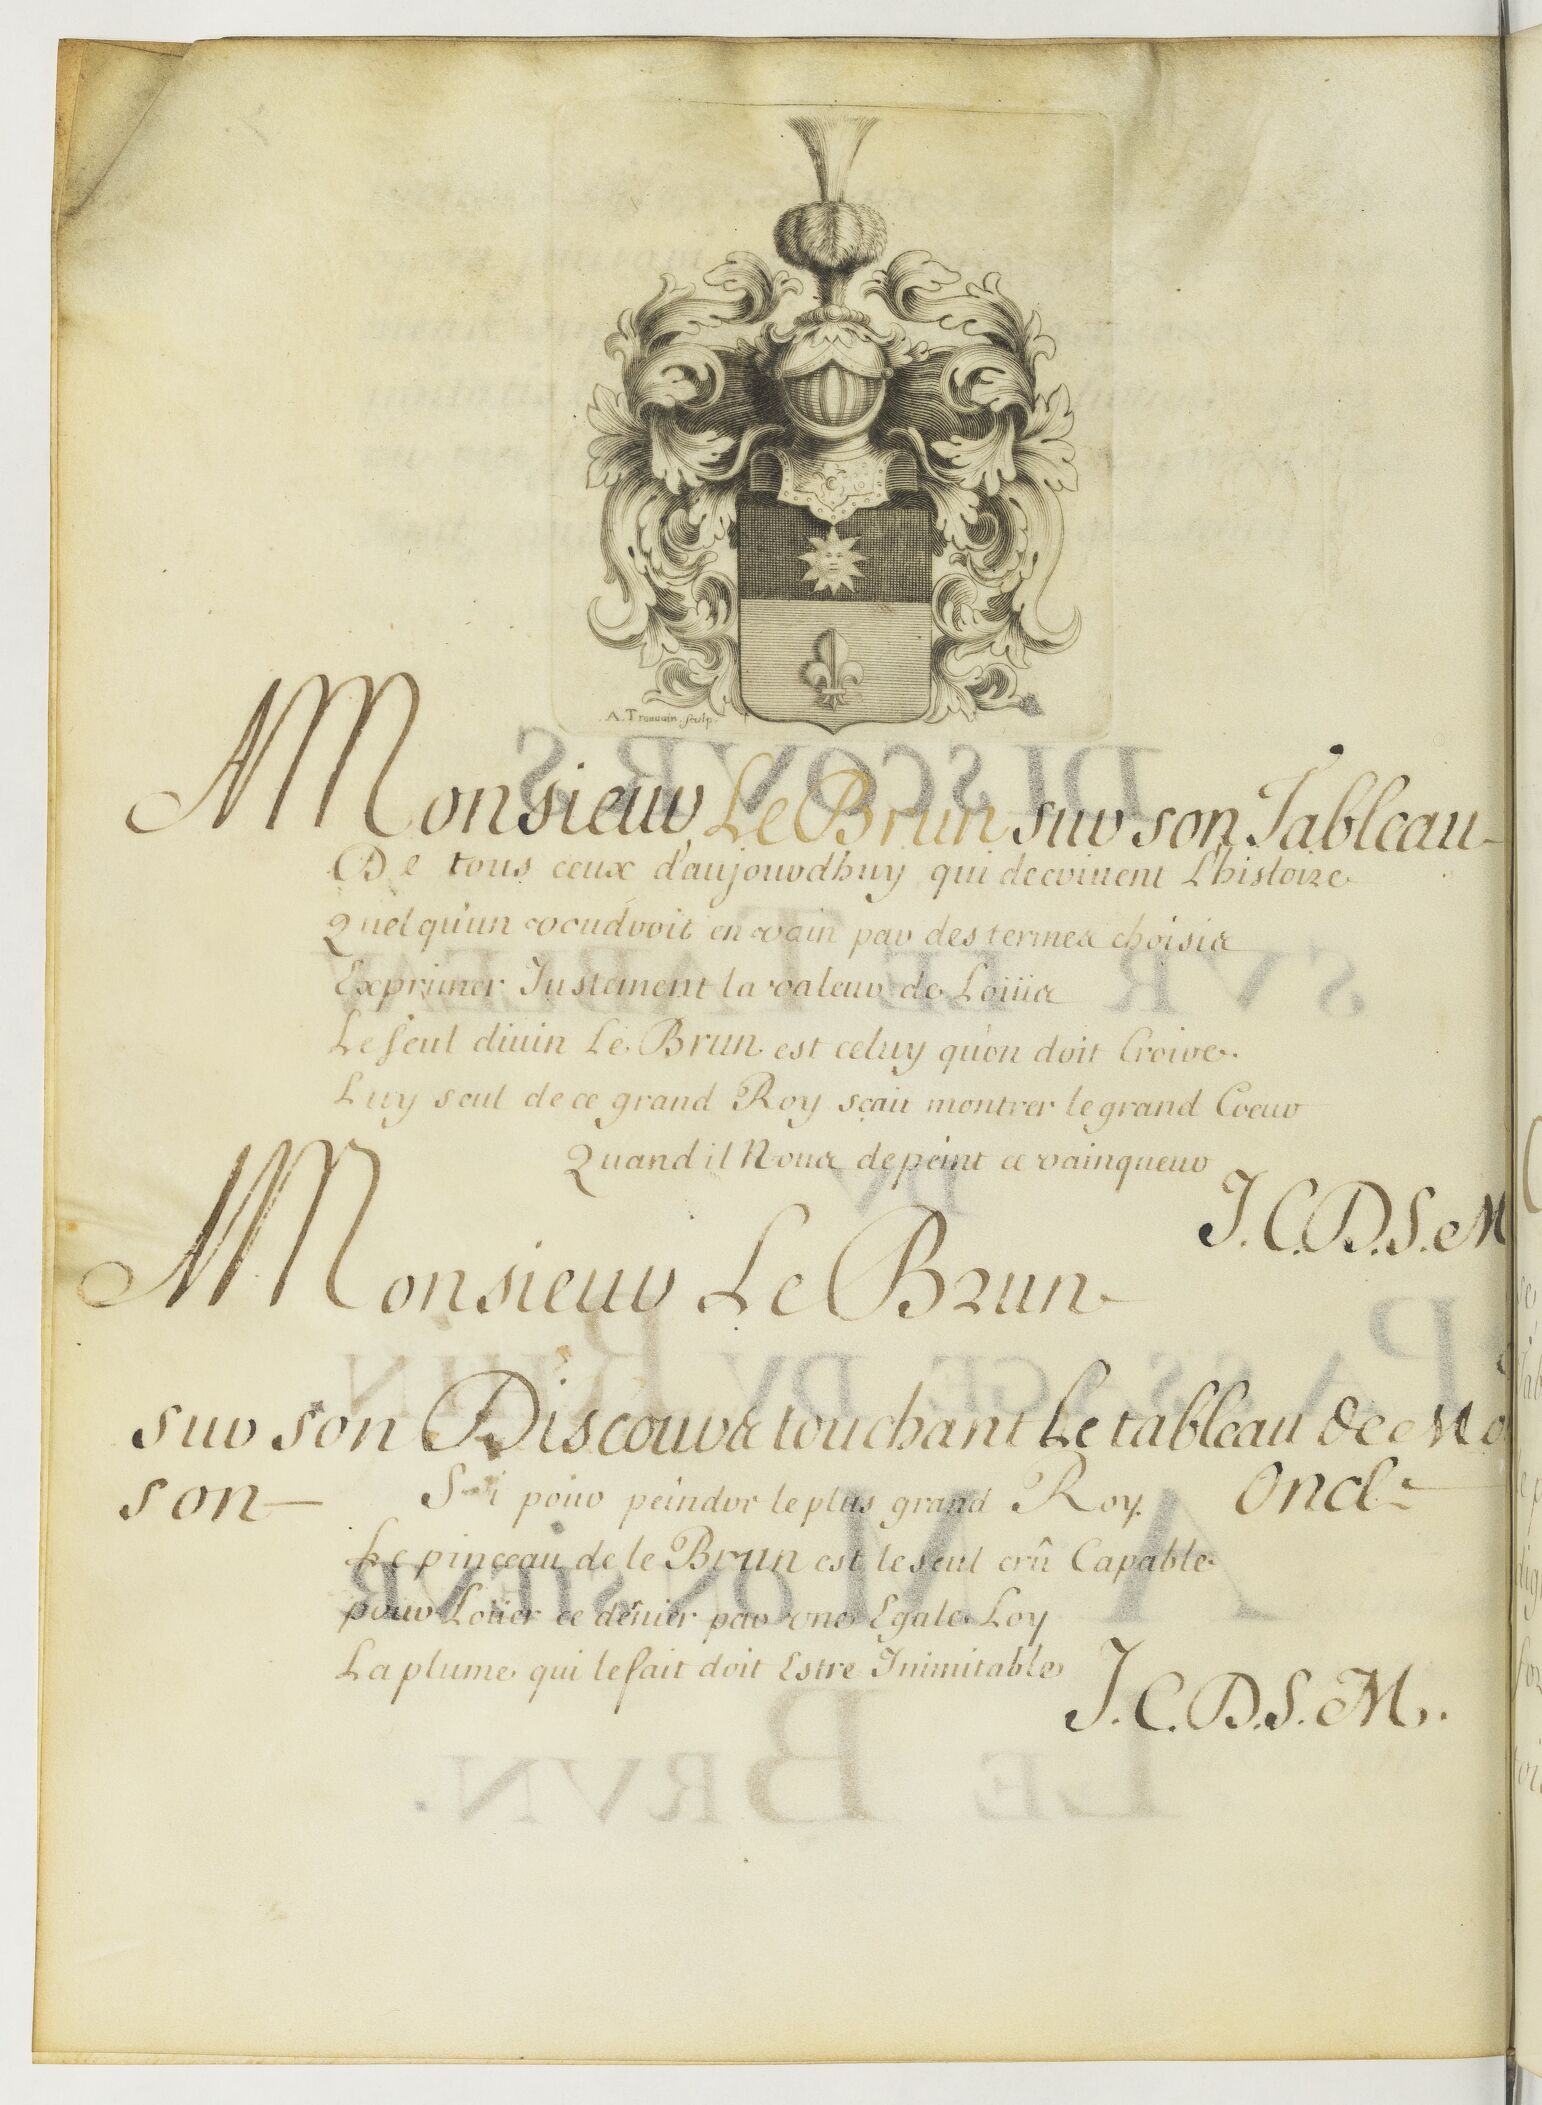 A. Trouuain. sculp.
A Monsieur Le Brun sur son Tableau
De tous ceux d'aujourdhuy qui decriuent L'histoire
Quelqu'un voudroit en vain par des termes choisis
Exprimer Justement la valeur de Loüis
Le seul diuin Le Brun est celuy qu'on doit Croire.
Luy seul de ce grand Roy sçait montrer le grand Coeur
Quand il Nous depeint ce vainqueur
J. C. D. S. M
A Monsieur Le Brun
sur son Discours touchant Le tableau de
son Oncle
Si pour peindre le plus grand Roy.
Le pinceau de le Brun est le seul crû Capable
pour Loüer ce dernier par vne Egale Loy
La plume qui le fait doit Estre Inimitable
J. C. D. S. M.